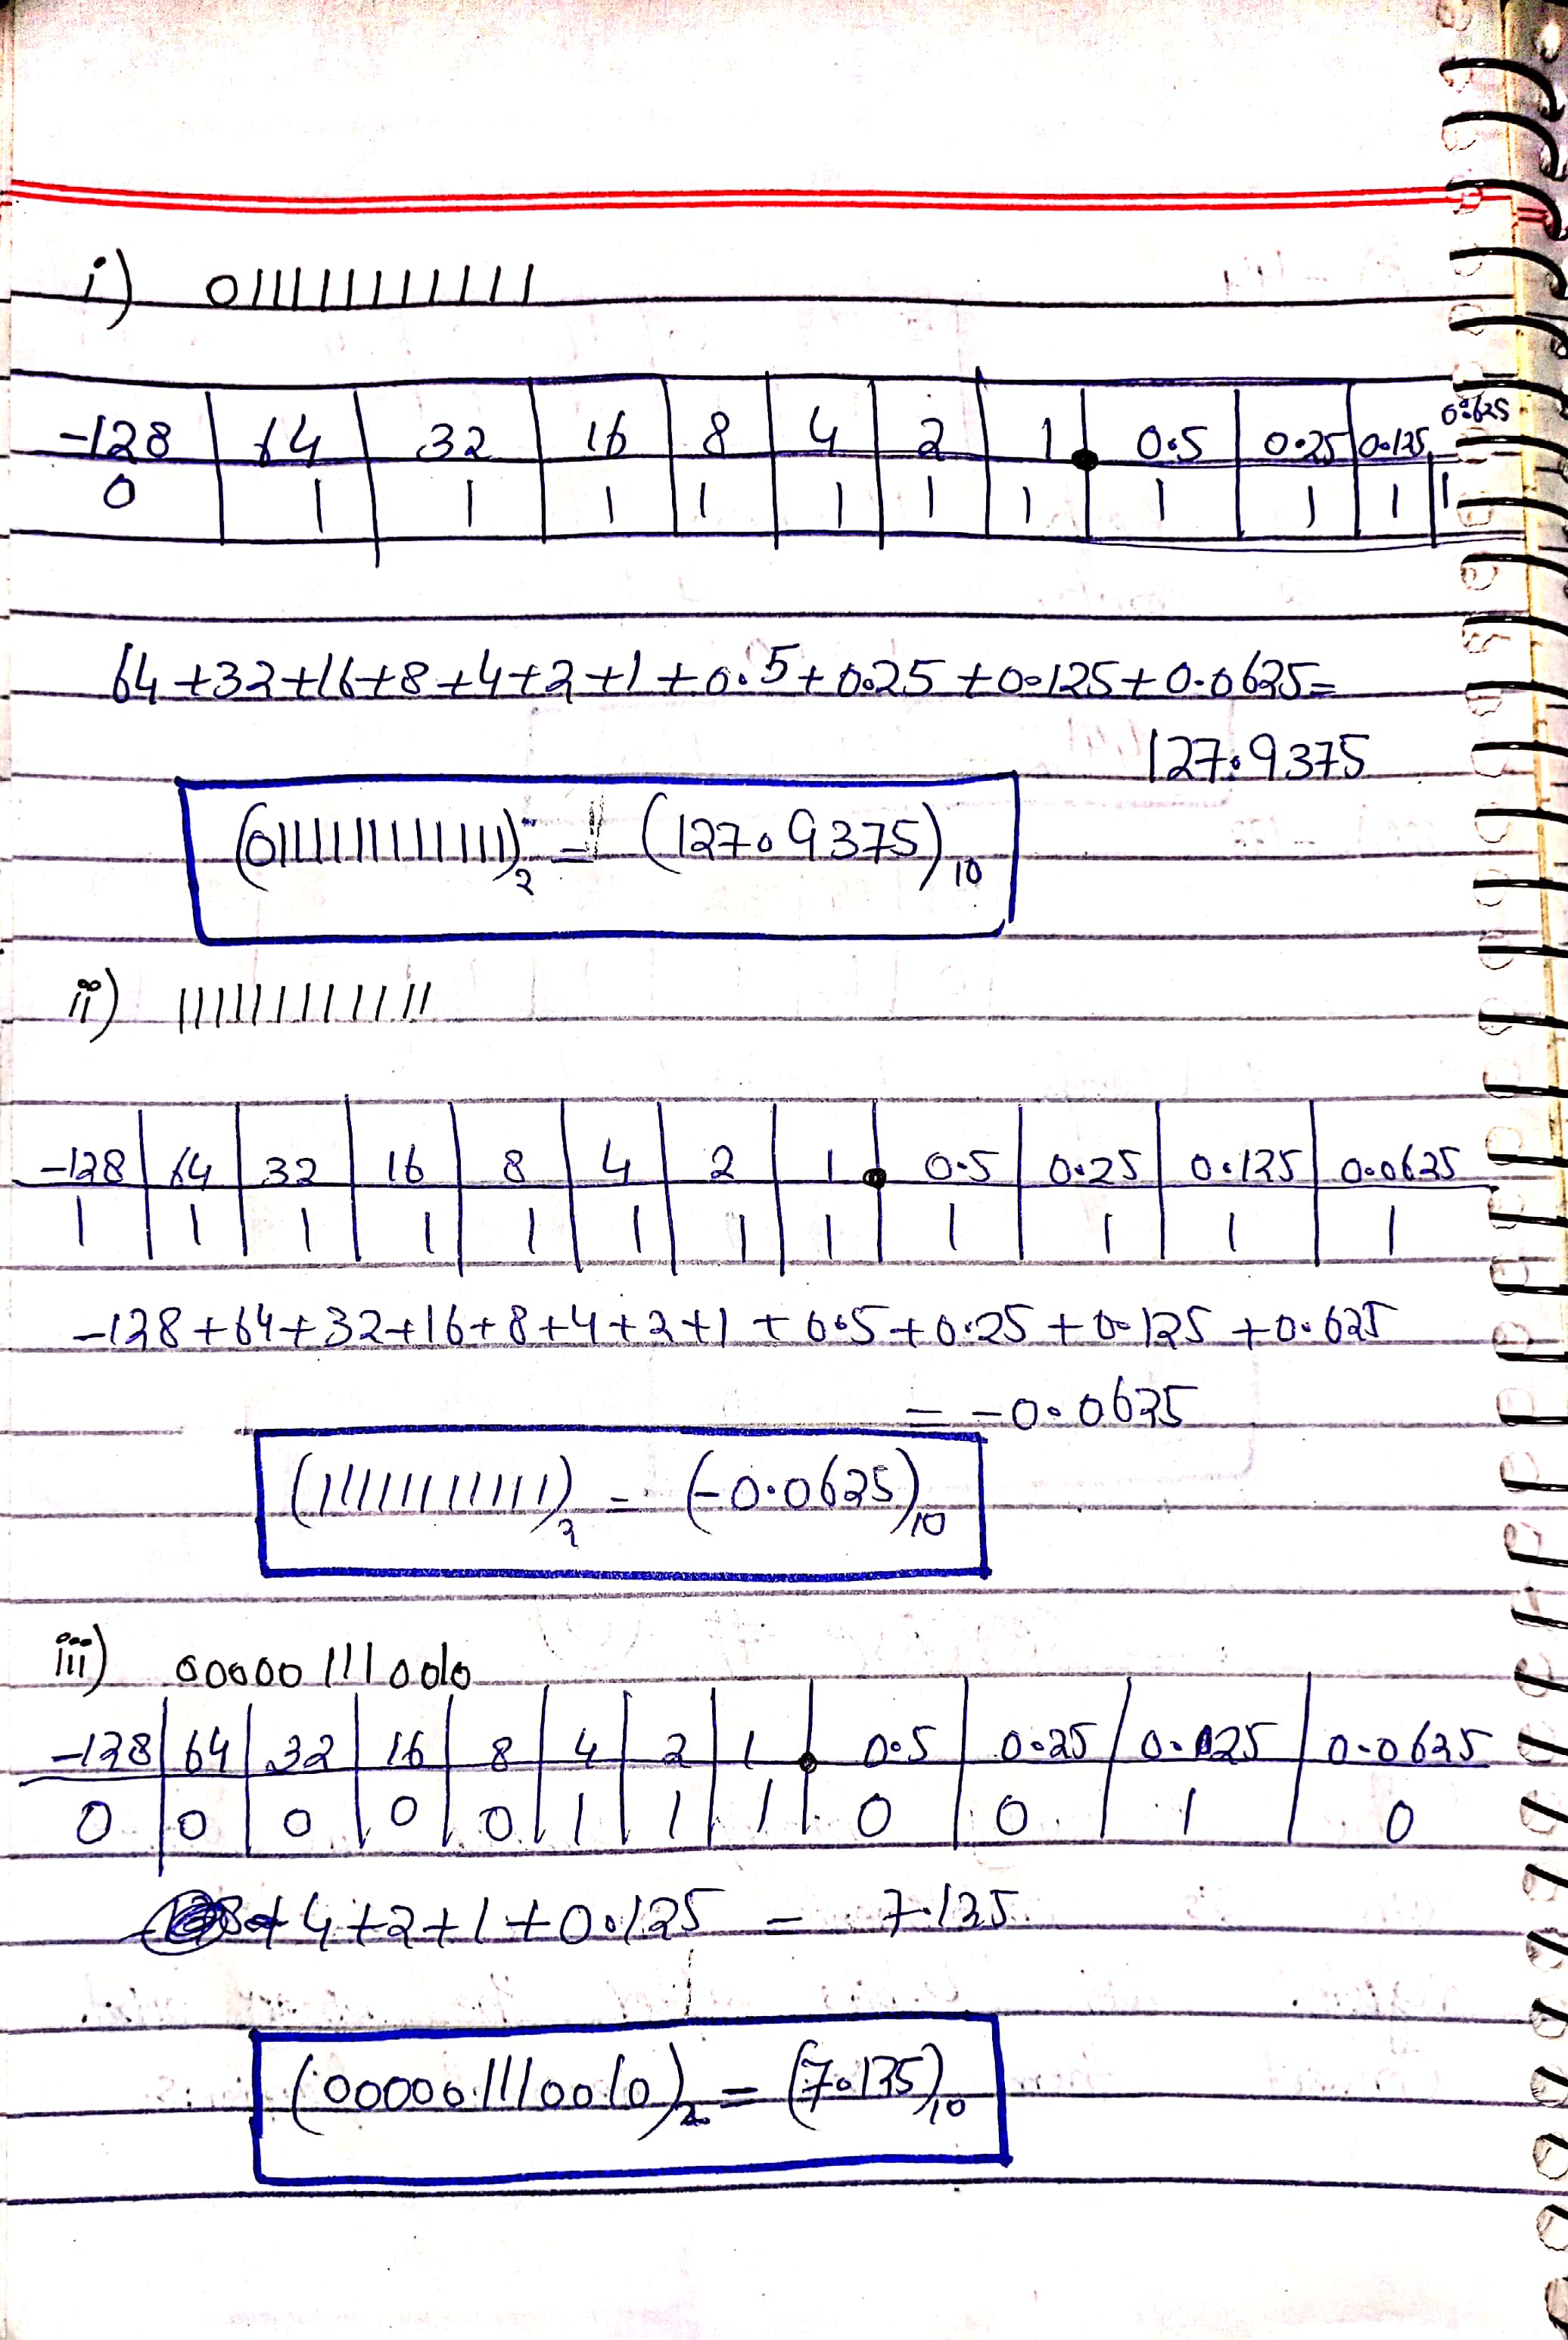 i) 011111111111
-128 64 32 16 8 4 2 1 0.5 0.25 0.125 0.0625
0 1 1 1 1 1 1 1 1 1 1 1
64+32+16+8+4+2+1+0.5+0.25+0.125+0.0625=
127.9375
(011111111111)2 = (127.9375)10
ii) 111111111111
-128 64 32 16 8 4 2 1 0.5 0.25 0.125 0.0625
1 1 1 1 1 1 1 1 1 1 1 1
-128+64+32+16+8+4+2+1+0.5+0.25+0.125+0.625
= -0.0625
(111111111111)2 = (-0.0625)10
iii) 000001110010
-128 64 32 16 8 4 2 1 0.5 0.25 0.125 0.0625
0 0 0 0 0 1 1 1 0 0 1 0
4+2+1+0.125 = 7.125
(000001110010)2 = (7.125)10